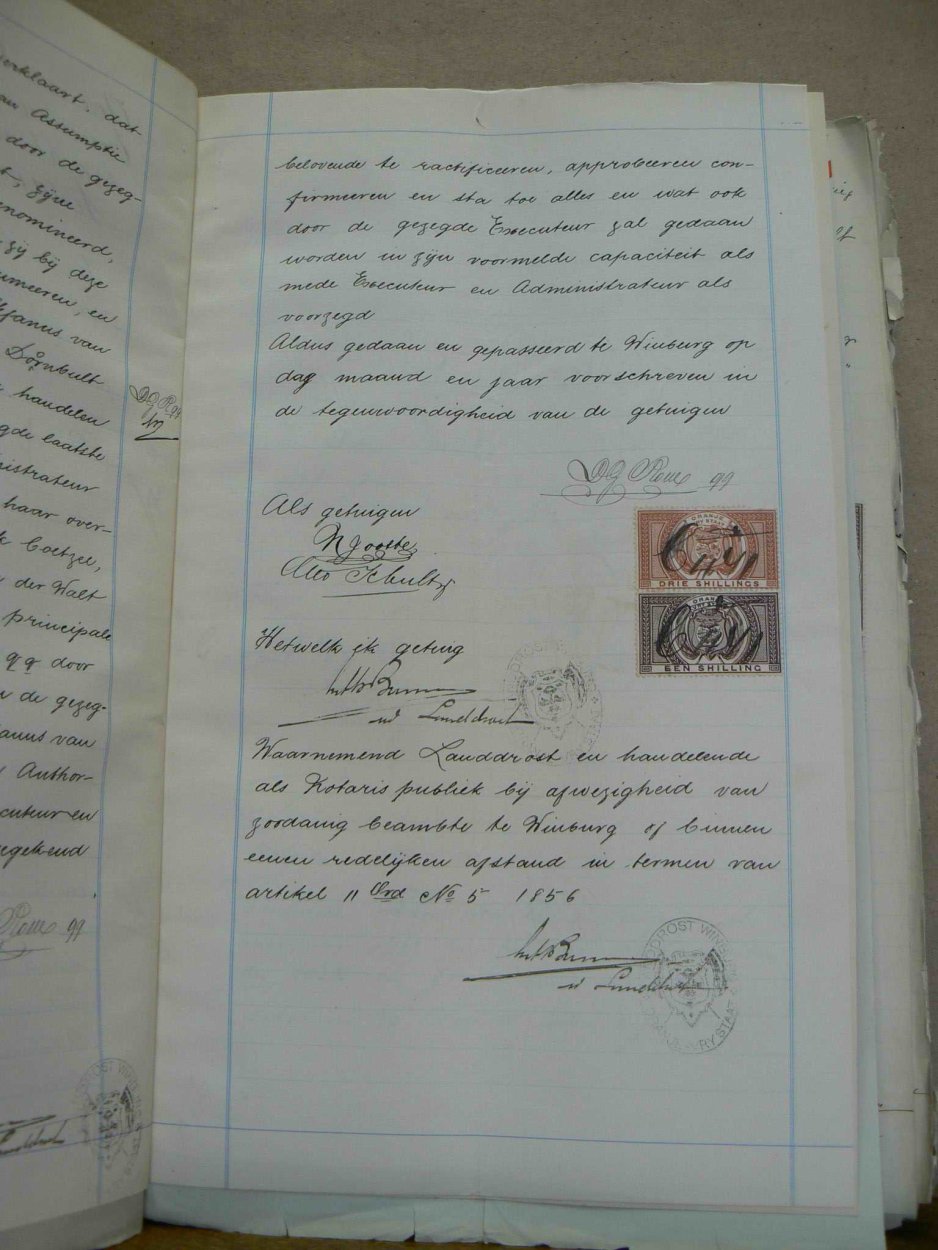 verklaart, dat
Assumptie
door de gezeg-
zijne
genomineerd,
zij bij deze
en
van
Dornbult
handelen
laatste
haar over-
Coetzee,
der Walt
principale
qq door
de gezeg-
van
Author-
en
qq
belovende te ractificeeren, approbeeren con-
firmeeren en sta toe alles en wat ook
door de gezegde Executeur zal gedaan
worden in zijn voormelde capaciteit als
mede Executeur en Administrateur als
voorzegd
Aldus gedaan en gepasseerd te Winburg op
dag maand en jaar voorschreven in
de tegenwoordigheid van de getuigen
qq
Als getuigen
N Jooste
Otto Schultz
DRIE SHILLINGS
EEN SHILLING
Hetwelk ik getuig
Landdrost
Waarnemend Landdrost en handelende
als Notaris publiek bij afwezigheid van
zoodanig beambte te Winburg of binnen
eenen redelijken afstand in termen van
artikel 11 Ord No 5 1856
Landdrost
LANDDROST WINBURG
ORANJE VRY STAAT